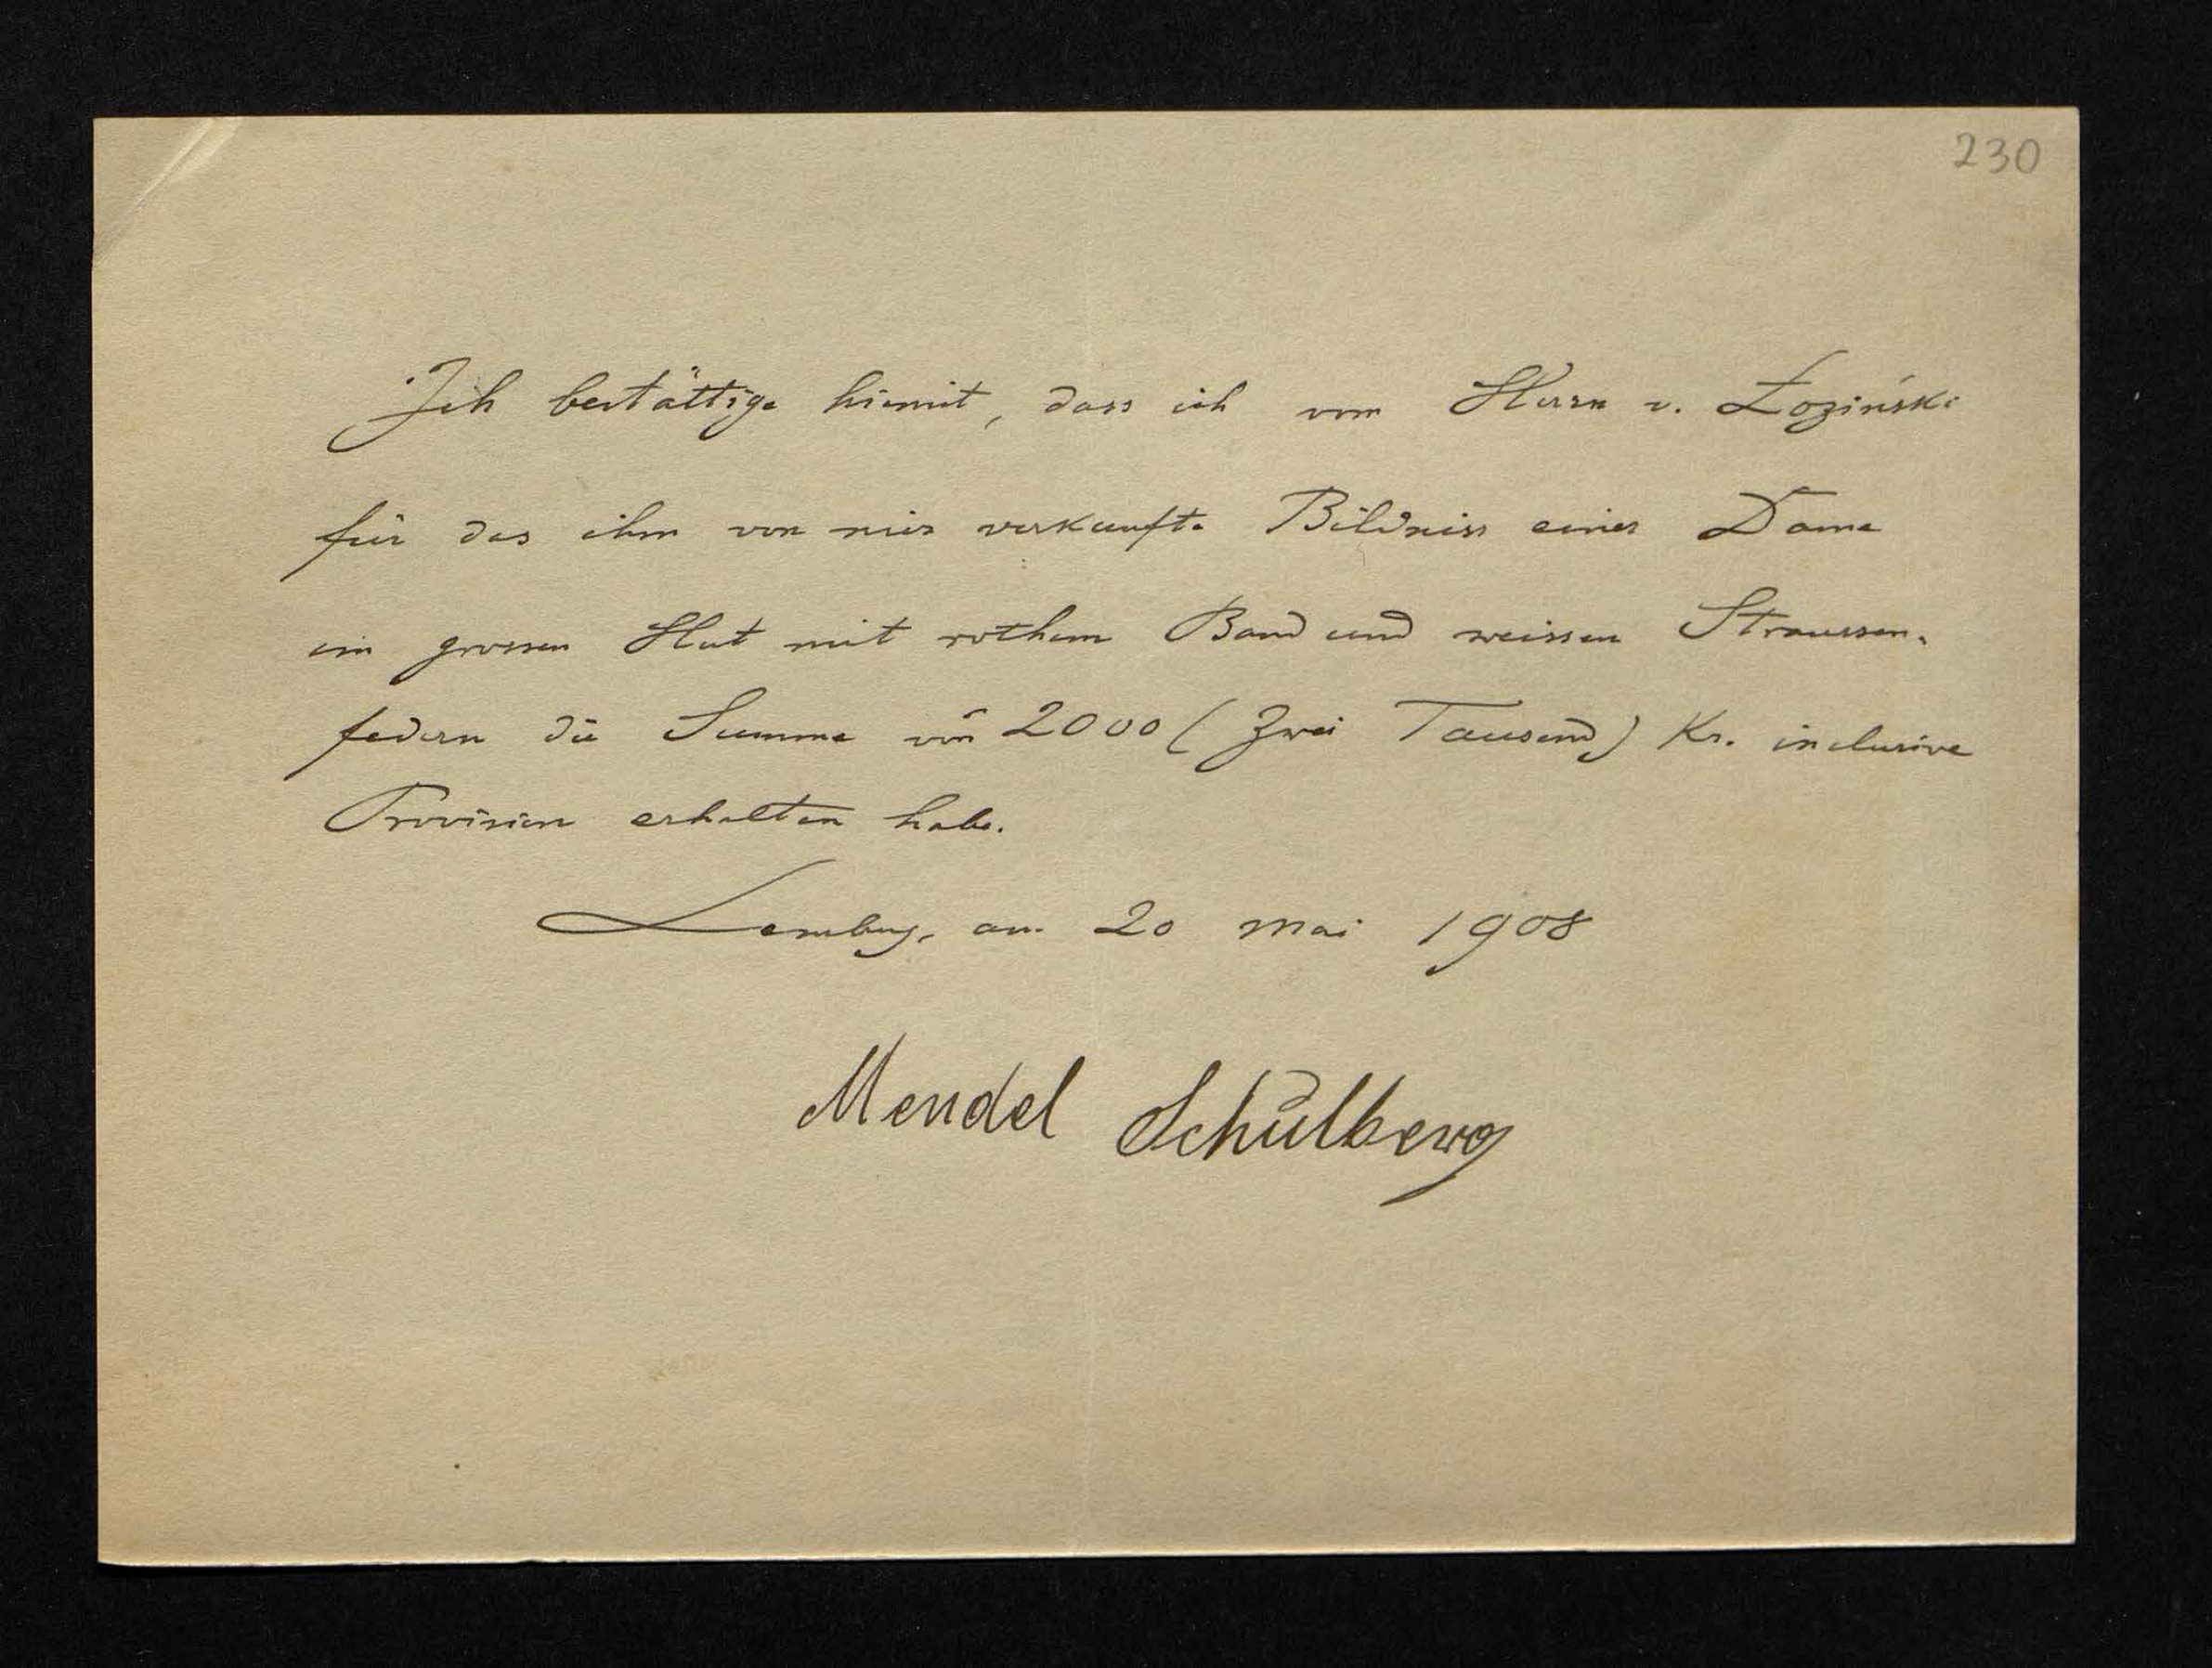 230
Ich bestättige hiemit, dass ich vom Herrn v. Łoziński
für das ihm von mir verkaufte Bildniss einer Dame
im grossen Hut mit rothem Band und weissen Straussen-
federn die Summe von 2000 (Zwei Tausend) Kr. inclusive
Provision erhalten habe.
Lemberg, am 20 Mai 1908
Mendel Schulberg